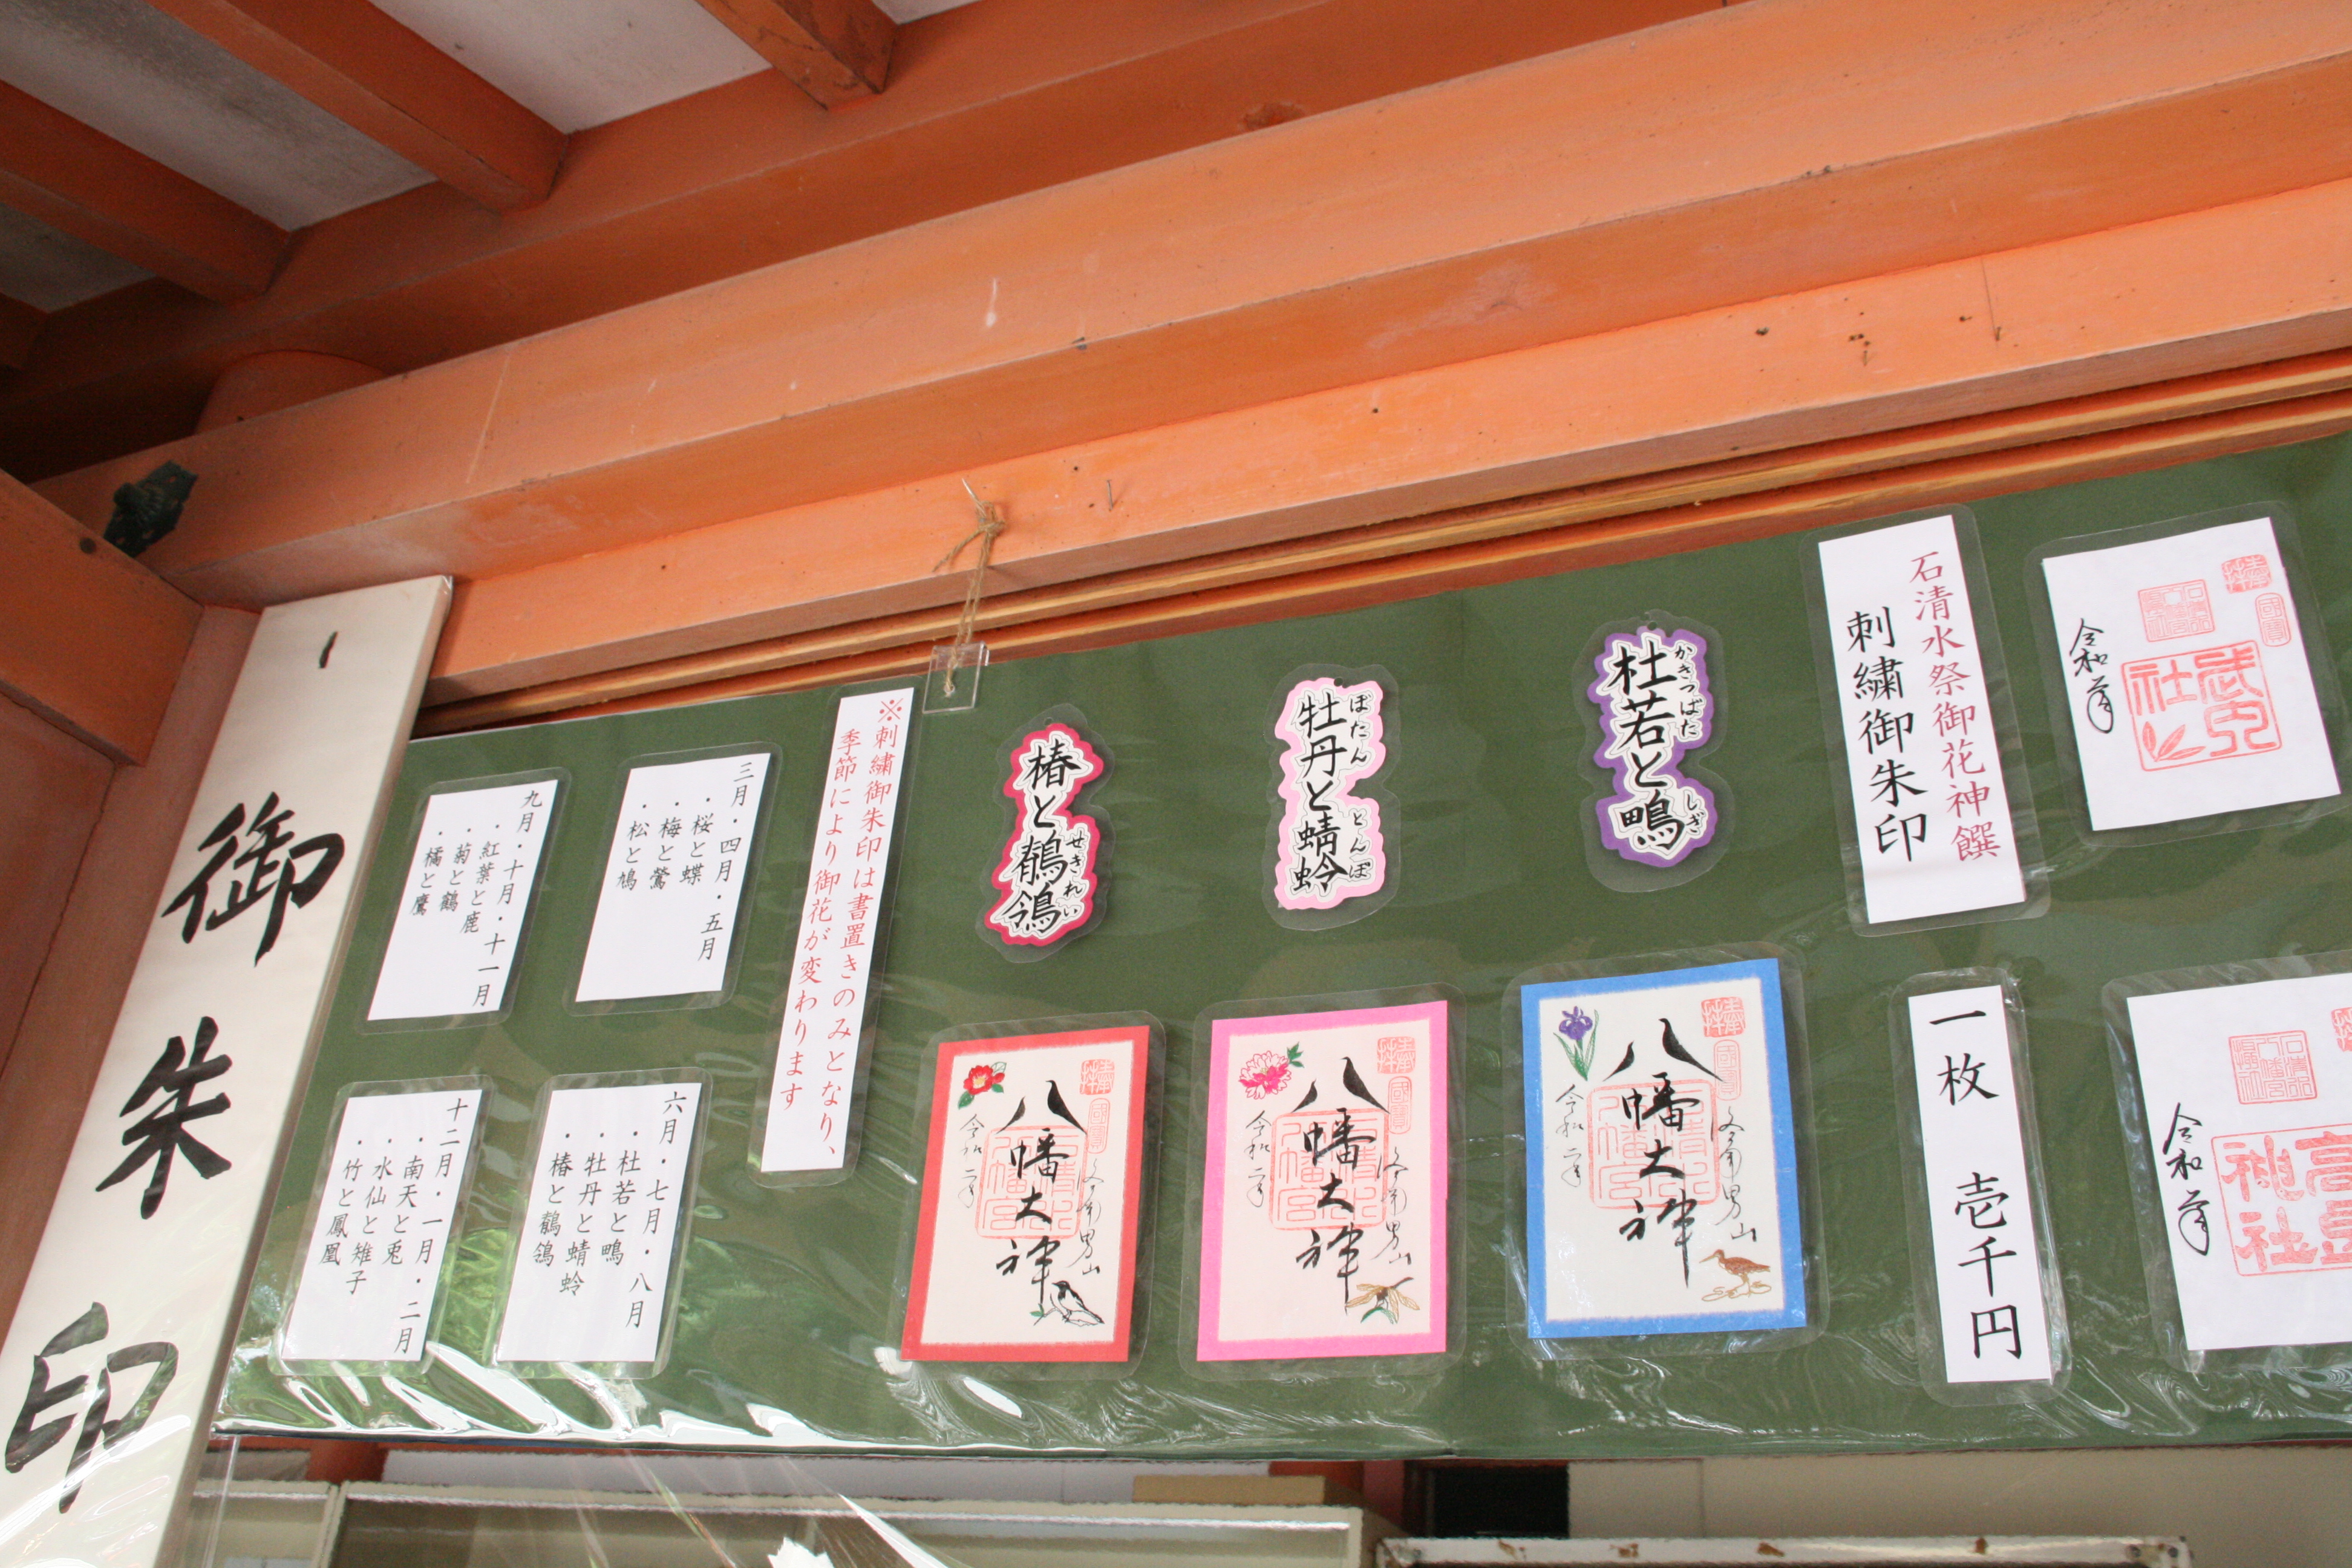 御朱印
石清水祭御花神饌
刺繍御朱印
一枚 壱千円
杜若と鴫
かきつばた
しぎ
牡丹と蜻蛉
ぼたん
とんぼ
椿と鶺鴒
せきれい
八幡大神
令和二年
男山
八幡大神
令和二年
男山
八幡大神
令和二年
男山
※刺繍御朱印は書置きのみとなり、
季節により御花が変わります
三月・四月・五月
・桜と蝶
・梅と鶯
・松と鳩
六月・七月・八月
・杜若と鴫
・牡丹と蜻蛉
・椿と鶺鴒
九月・十月・十一月
・紅葉と鹿
・菊と鶴
・橘と鷹
十二月・一月・二月
・南天と兎
・水仙と雉子
・竹と鳳凰
奉拝
國寶
武内社
令和 年
令和 年